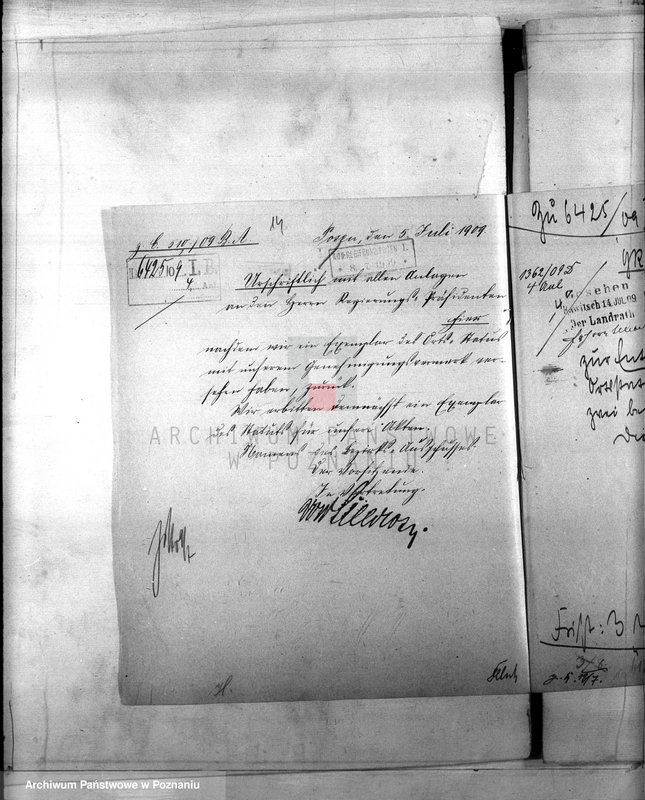 J. C. 510/09 B.A. 14 Posen, den 5. Juli 1909.
6425/09 I.B.
4 Anl.
Urschriftlich mit allen Anlagen
an den Herrn Regierungs-Präsidenten
hier
nachdem wir ein Exemplar des Orts-Statuts
mit unserem Genehmigungsvermerk ver-
sehen haben, zurück.
Wir erbitten demnächst ein Exemplar
des Statuts für unsere Akten.
Namens des Bezirks-Ausschusses
Der Vorsitzende.
In Vertretung.
ARCHIWUM PAŃSTWOWE
W POZNANIU
Zu 6425/09
1362/09 D
4 Anl
Gesehen
Rawitsch 14 JUL. 09
Der Landrath
zur
Ortsstat
zwei
Frist: 3
Archiwum Państwowe w Poznaniu